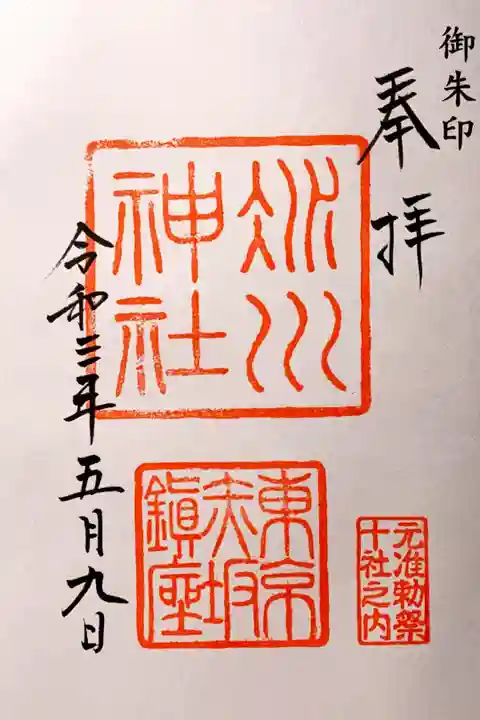 御朱印
奉拝
氷川
神社
令和三年五月九日
東京
赤坂
鎮座
元准勅祭
十社之内